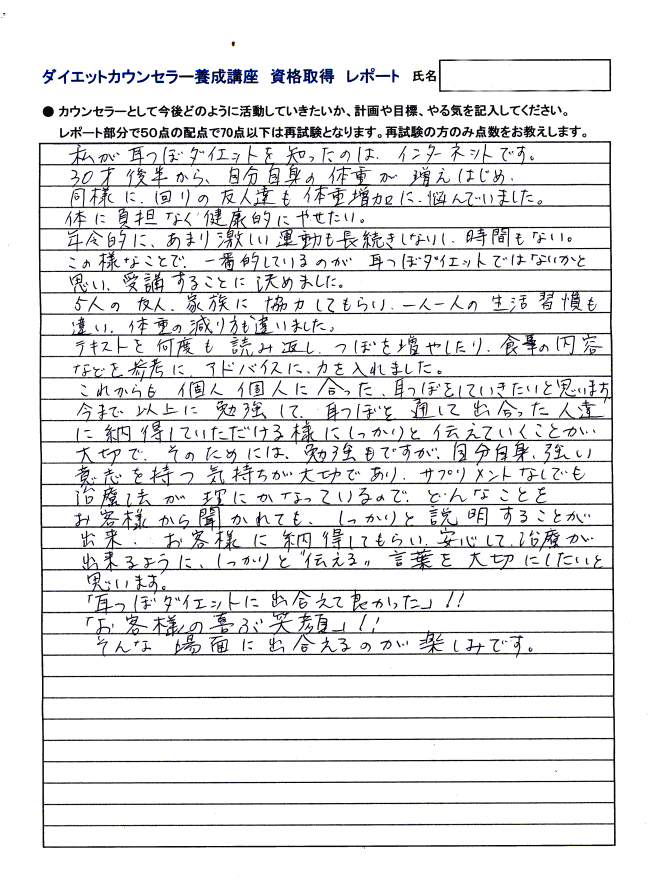 ダイエットカウンセラー養成講座 資格取得 レポート 氏名
● カウンセラーとして今後どのように活動していきたいか、計画や目標、やる気を記入してください。
レポート部分で50点の配点で70点以下は再試験となります。再試験の方のみ点数をお教えします。
私が耳つぼダイエットを知ったのは、インターネットです。
30才後半から、自分自身の体重が増えはじめ、
同様に、回りの友人達も体重増加に、悩んでいました。
体に負担なく健康的にやせたい。
年令的に、あまり激しい運動も長続きしないし、時間もない。
この様なことで、一番的しているのが耳つぼダイエットではないかと
思い、受講することに決めました。
5人の友人、家族に協力してもらい、一人一人の生活習慣も
違い、体重の減り方も違いました。
テキストを何度も読み返し、つぼを増やしたり、食事の内容
などを参考に、アドバイスに、力を入れました。
これからも個人個人に合った、耳つぼをしていきたいと思います。
今まで以上に勉強して、耳つぼを通して出合った人達
に納得していただける様にしっかりと伝えていくことが
大切で、そのためには、勉強もですが、自分自身、強い
意志を持つ気持ちが大切であり、サプリメントなしでも
治療法が理にかなっているので、どんなことを
お客様から聞かれても、しっかりと説明することが
出来、お客様に納得してもらい、安心して、治療が
出来るように、しっかりと"伝える"言葉を大切にしたいと
思います。
「耳つぼダイエットに出合えて良かった」!!
「お客様の喜ぶ笑顔」!!
そんな場面に出合えるのが楽しみです。